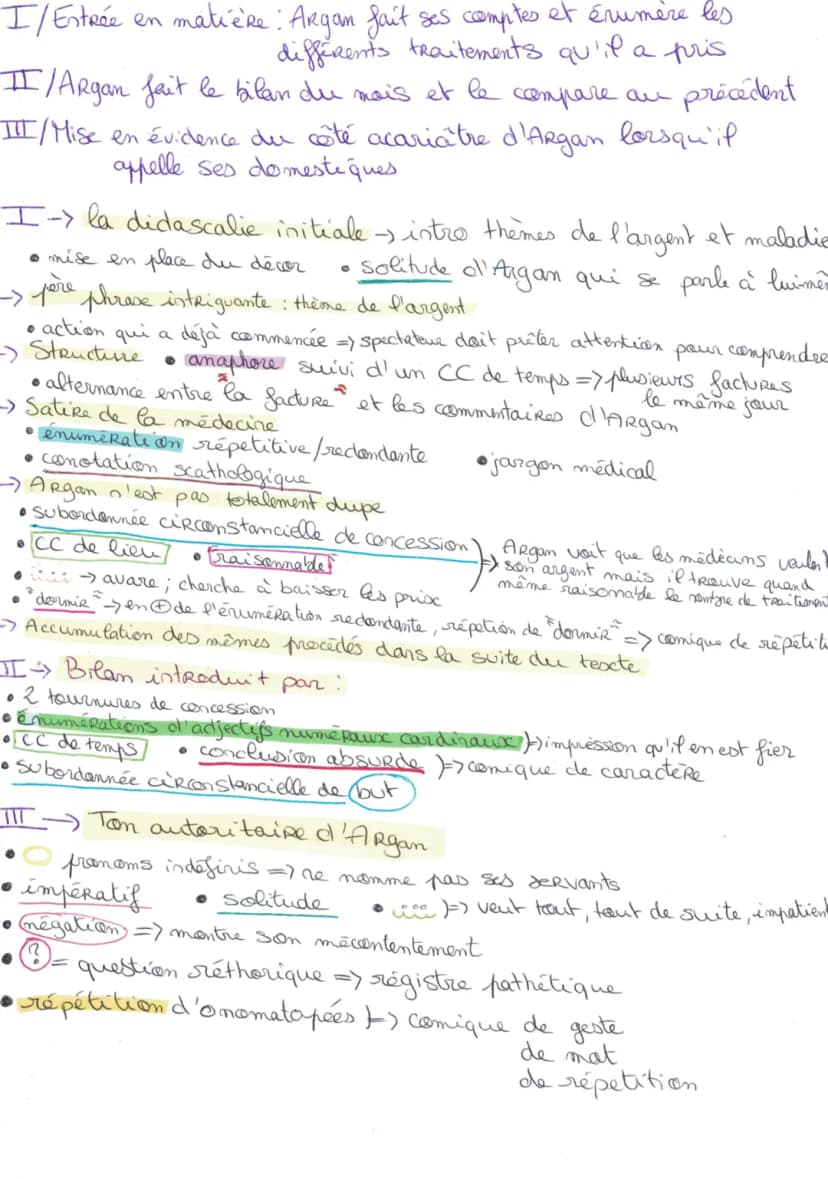 I/Entrée en matière : Argan fait ses comptes et énumère les
différents traitements qu'il a pris
II/Argan fait le bilan du mois et le compare au précédent
III/Mise en évidence du côté acariâtre d'Argan lorsqu'il
appelle ses domestiques
I -> la didascalie initiale -> intro thèmes de l'argent et maladie
• mise en place du décor • solitude d'Argan qui se parle à lui mêm
-> 1ère phrase intriguante : thème de l'argent
• action qui a déjà commencée => spectateur doit prêter attention pour comprendre
-> Structure • anaphore suivi d'un CC de temps => plusieurs factures
le même jour
• alternance entre "la facture" et les commentaires d'Argan
-> Satire de la médecine
• énumération répétitive/redondante • jargon médical
• conotation scathologique
-> Argan n'est pas totalement dupe
• subordonnée circonstancielle de concession
• CC de lieu • raisonnable
=> Argan voit que les médecins veulent
son argent mais il trouve quand
même raisonable le nombre de traitement
• iii -> avare ; cherche à baisser les prix
• "dormir" -> en + de l'énumération redondante, répétion de "dormir" => comique de répétiti
-> Accumulation des mêmes procédés dans la suite du texte
II -> Bilan introduit par :
• 2 tournures de concession
• Énumérations d'adjectifs numéraux cardinaux }=> impression qu'il en est fier
• CC de temps • conclusion absurde }=> comique de caractère
• subordonnée circonstancielle de but
III -> Ton autoritaire d'Argan
• pronoms indéfinis => ne nomme pas ses servants
• impératif • solitude • iii }=> veut tout, tout de suite, impatient
• négation => montre son mécontentement
• ? = question réthorique => régistre pathétique
• répétition d'onomatopées }-> comique de geste
de mot
de répetition